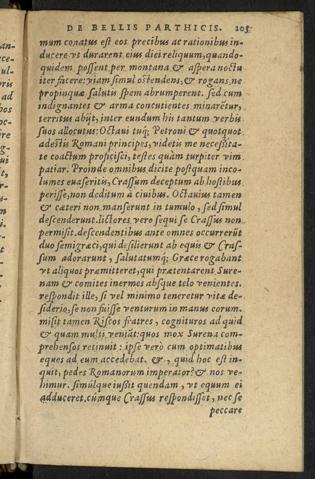 DE BELLIS PARTHICIS. 205
mum conatus est eos precibus ac rationibus in-
ducere vt durarent eius diei reliquum, quando-
quidem possent per montana & aspera noctu
iter facere: viam simul ostendens, & rogans, ne
propinquæ saluti spem abrumperent. sed cum
indignantes & arma concutientes minarētur,
territus abijt, inter eundum hi tantum verbis
suos allocutus: Octaui tuq́; Petroni & quotquot
adestis Romani principes, videtis me necessita-
te coactum proficisci, testes quàm turpiter vim
patiar. Proinde omnibus dicite postquam inco-
lumes euaseritis, Crassum deceptum ab hostibus
perisse, non deditum à ciuibus. Octauius tamen
& cæteri non manserunt in tumulo, sed simul
descenderunt. lictores verò sequi se Crassus non
permisit. descendentibus ante omnes occurrerūt
duo semigræci, qui desilierunt ab equis & Cras-
sum adorarunt, salutatumq́; Græce rogabant
vt aliquos præmitteret, qui prætentarent Sure-
nam & comites inermes absque telo venientes.
respondit ille, si vel minimo teneretur vitæ de-
siderio, se non fuisse venturum in manus eorum.
misit tamen Riscos fratres, cognituros ad quid
& quàm multi veniāt: quos mox Surena com-
prehensos retinuit: ipse verò cum optimatibus
eques ad eum accedebat. &, quid hoc est in-
quit, pedes Romanorum imperator? & nos ve-
himur. simúlque iußit quendam, vt equum ei
adduceret. cúmque Crassus respondisset, nec se
peccare